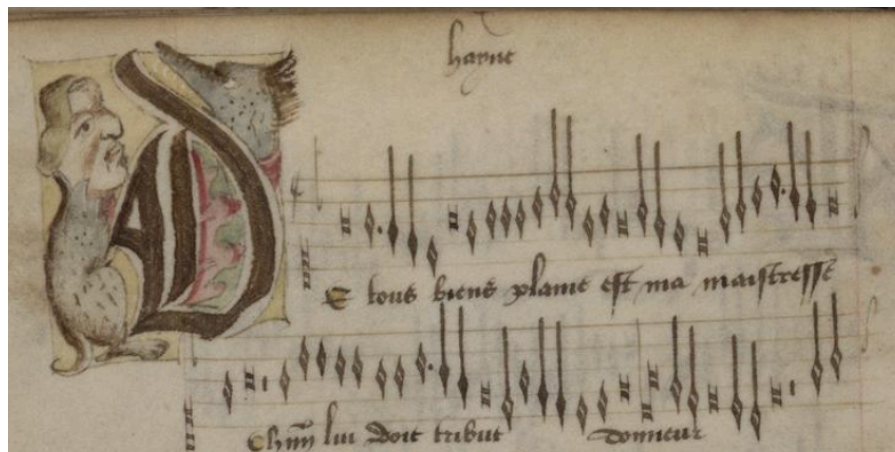 hayne
De tous biens plaine est ma maistresse
Chũn lui doit tribut donneur